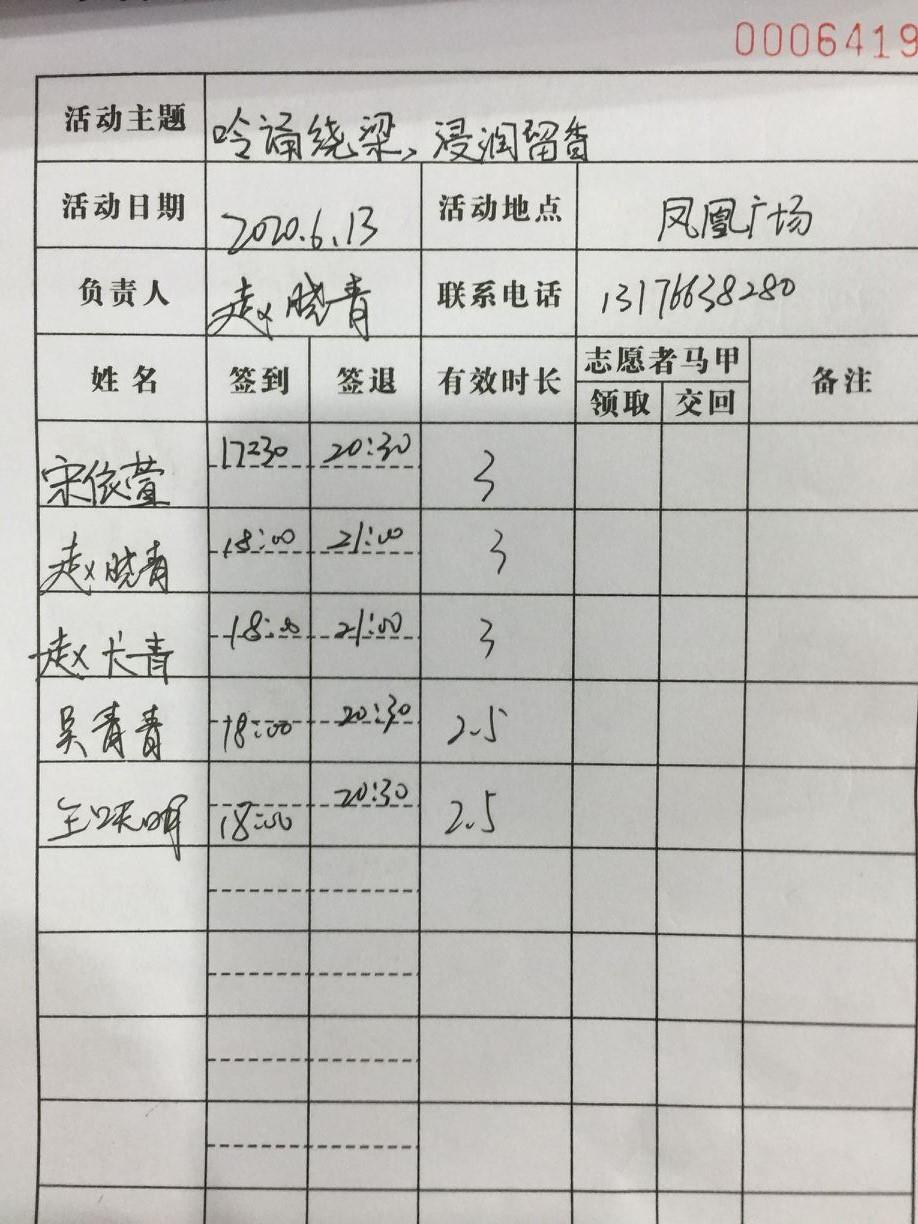 0006419
活动主题 吟诵绕梁、浸润留香
活动日期 2020.6.13 活动地点 凤凰广场
负责人 赵晓青 联系电话 13176638280
姓名 签到 签退 有效时长 志愿者马甲 备注
领取 交回
宋依萱 17:30 20:30 3
赵晓青 18:00 21:00 3
赵长青 18:00 21:00 3
吴青青 18:00 20:30 2.5
18:00 20:30 2.5